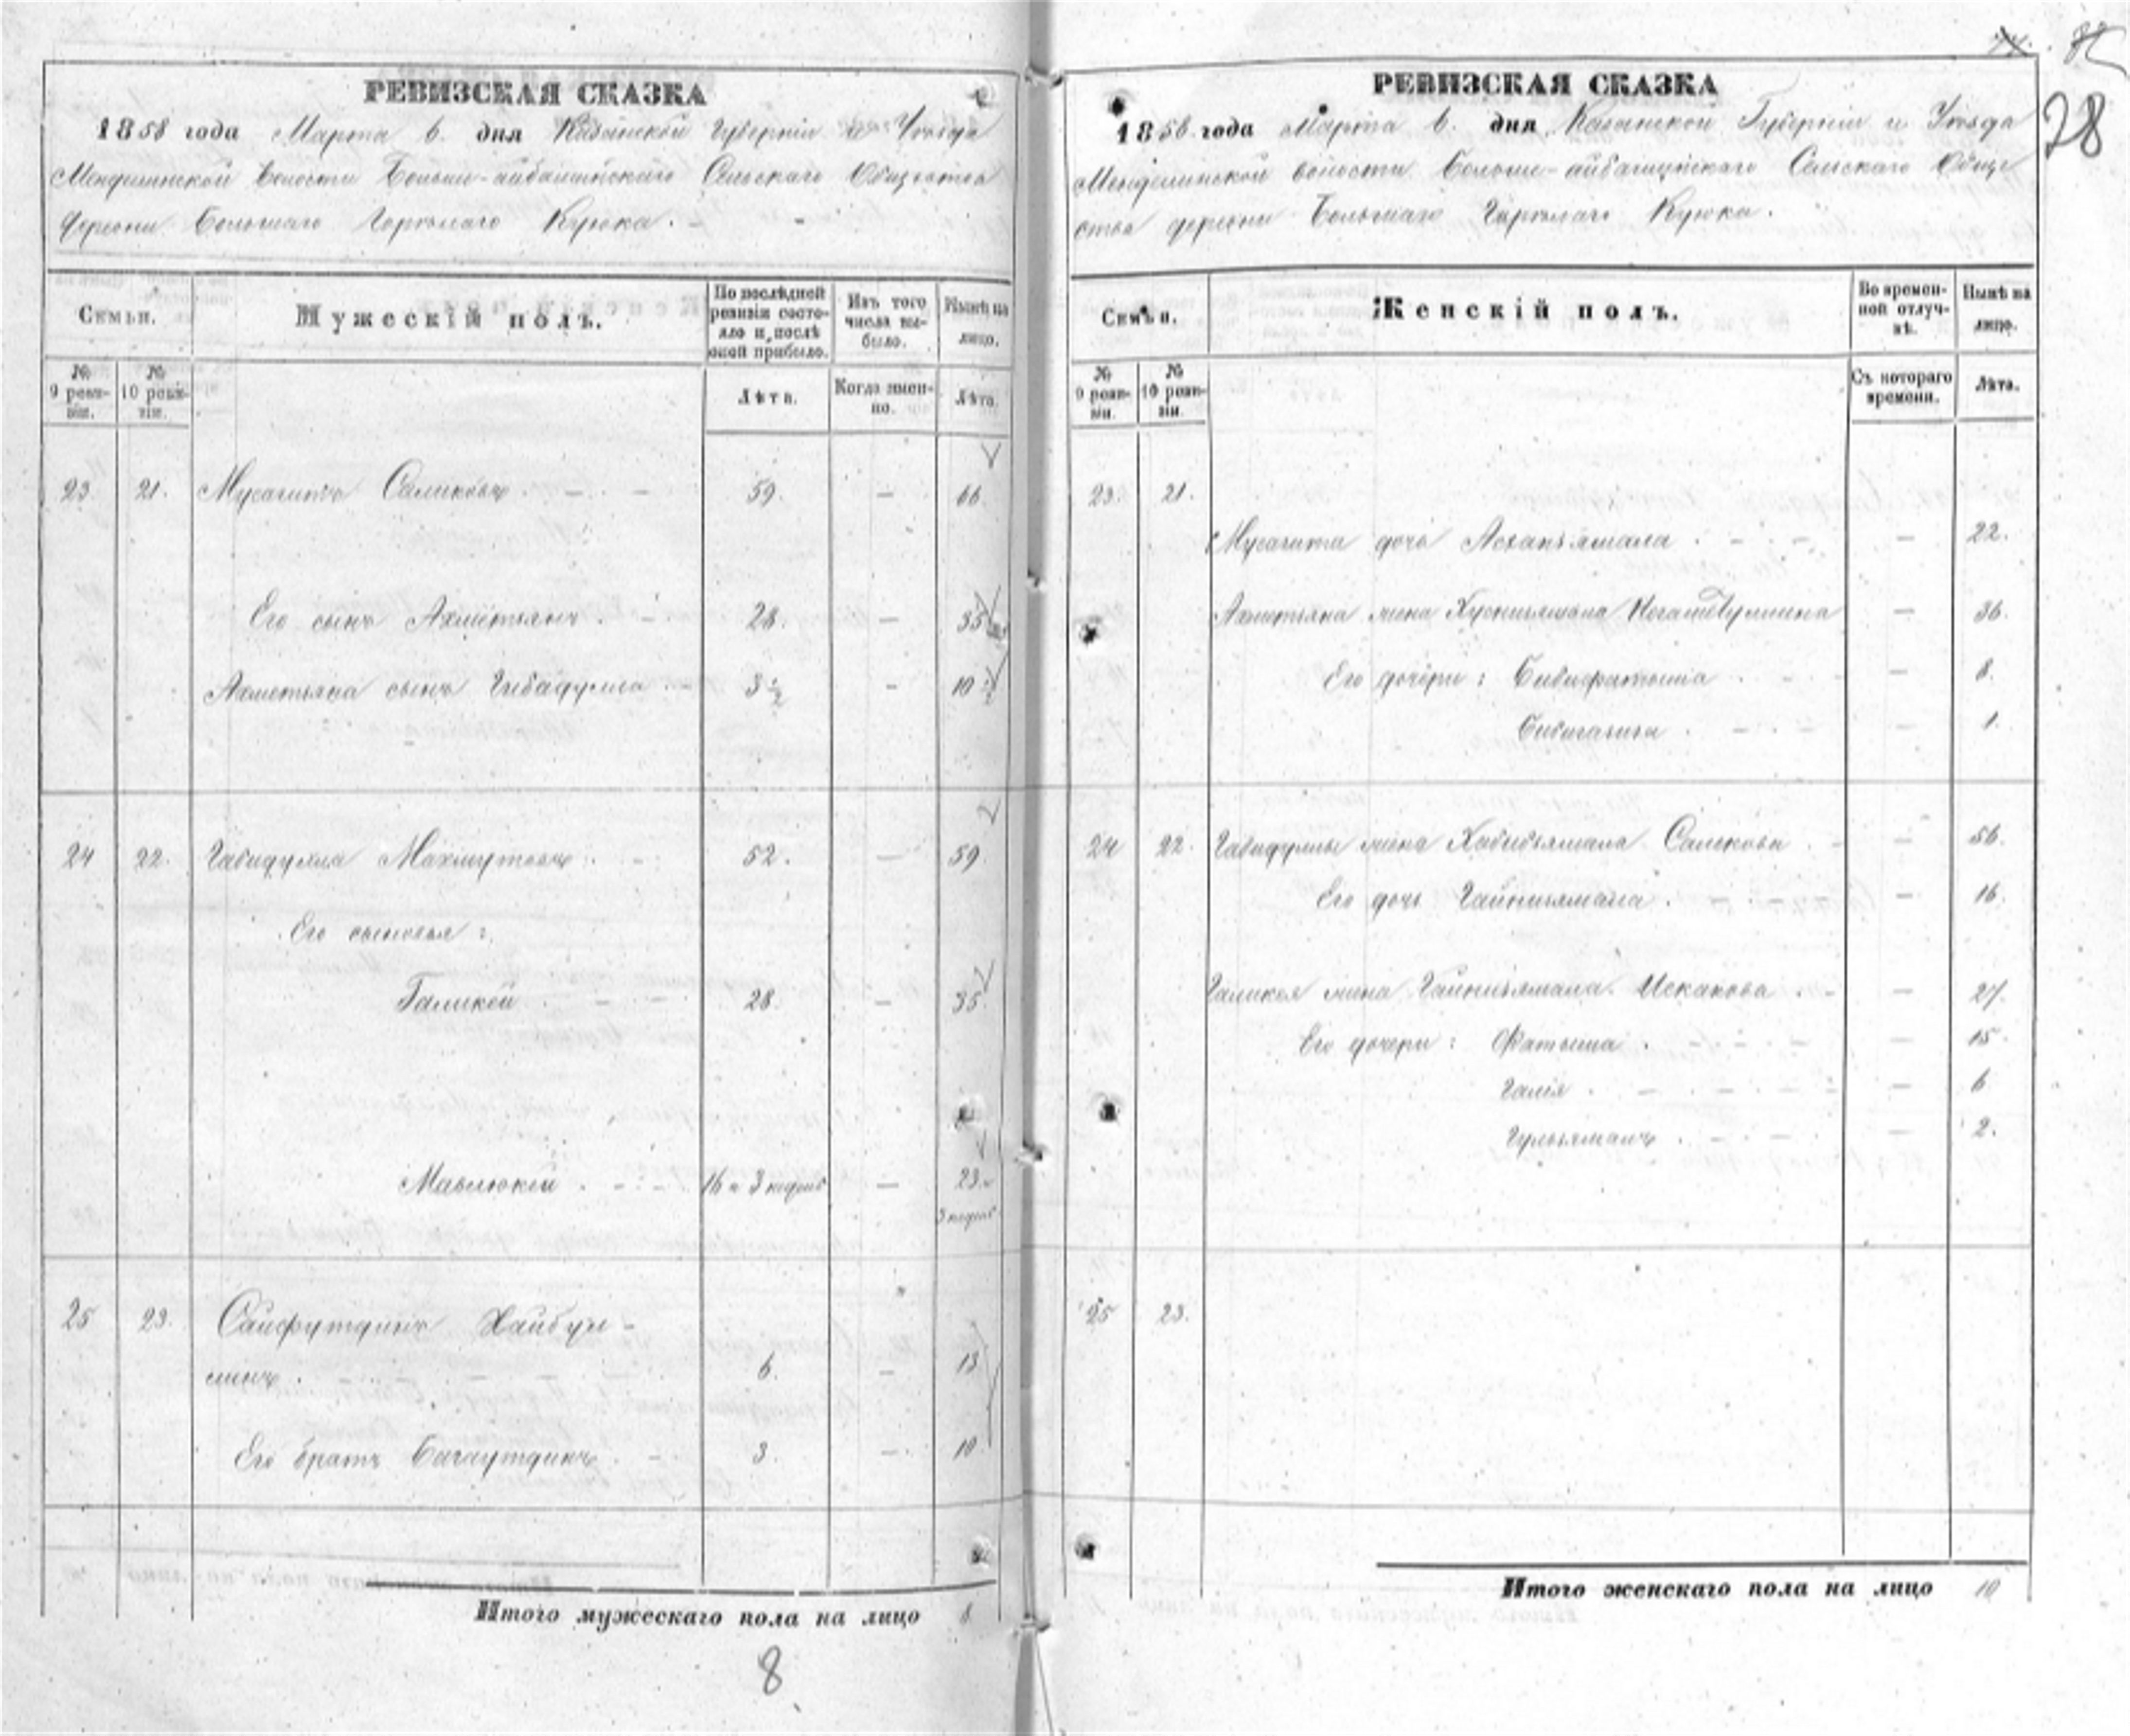 РЕВИЗСКАЯ СКАЗКА
1858 года Марта 6. дня Казанской Губерніи и Уѣзда
Менделинской Волости Больше-айбашинскаго Сельскаго Общества
деревни Большаго Горталаго Куюка. -
Семьи.
Мужескій полъ.
По послѣдней ревизіи состояло и послѣ оной прибыло.
Изъ того числа выбыло.
Нынѣ на лицо.
№ 9 ревизіи.
№ 10 ревизіи.
Лѣта.
Когда именно.
Лѣта.
23. 21. Мусагитъ Саликовъ. - - 59. — 66.
Его сынъ Ахметьянъ. - 28. — 35
Ахметьяна сынъ Гибадулла - 3 1/2 - 10 1/2
24 22. Габидулла Махмутовъ. - 52. — 59.
Его сыновья:
Галикей - - 28. — 35.
Мавлюкей. - - 16 и 3 недѣл — 23. и
3 недѣл
25 23. Сайфутдинъ Хайбул-
линъ. - - - - 6. — 13
Его братъ Багаутдинъ. - 3. — 10.
Итого мужескаго пола на лицо 8.
8
28
РЕВИЗСКАЯ СКАЗКА
1858 года Марта 6. дня Казанской Губерніи и Уѣзда
Менделинской волости Больше-айбашинскаго Сельскаго Обще
ства деревни Большаго Горталаго Куюка.
Семьи.
Женскій полъ.
Во временной отлучкѣ.
Нынѣ на лицо.
№ 9 ревизіи.
№ 10 ревизіи.
Съ котораго времени.
Лѣта.
23. 21.
Мусагита дочь Асхапъямала. - - — 22.
Ахметьяна жена Хуснизямала — 36.
Его дочери: Бибифатыма - - — 8.
Бибигазиза. - - — 1.
24 22. Габидуллы жена Хабибъямала Саликова. - — 56.
Его дочь Гайнизямала. - - — 16.
Галикея жена Гайнизямала Искакова. - — 27.
Его дочери: Фатыма. - - - — 15.
Галія. - - - — 6
Гульямалъ. - - - — 2.
25 23.
Итого женскаго пола на лицо 10